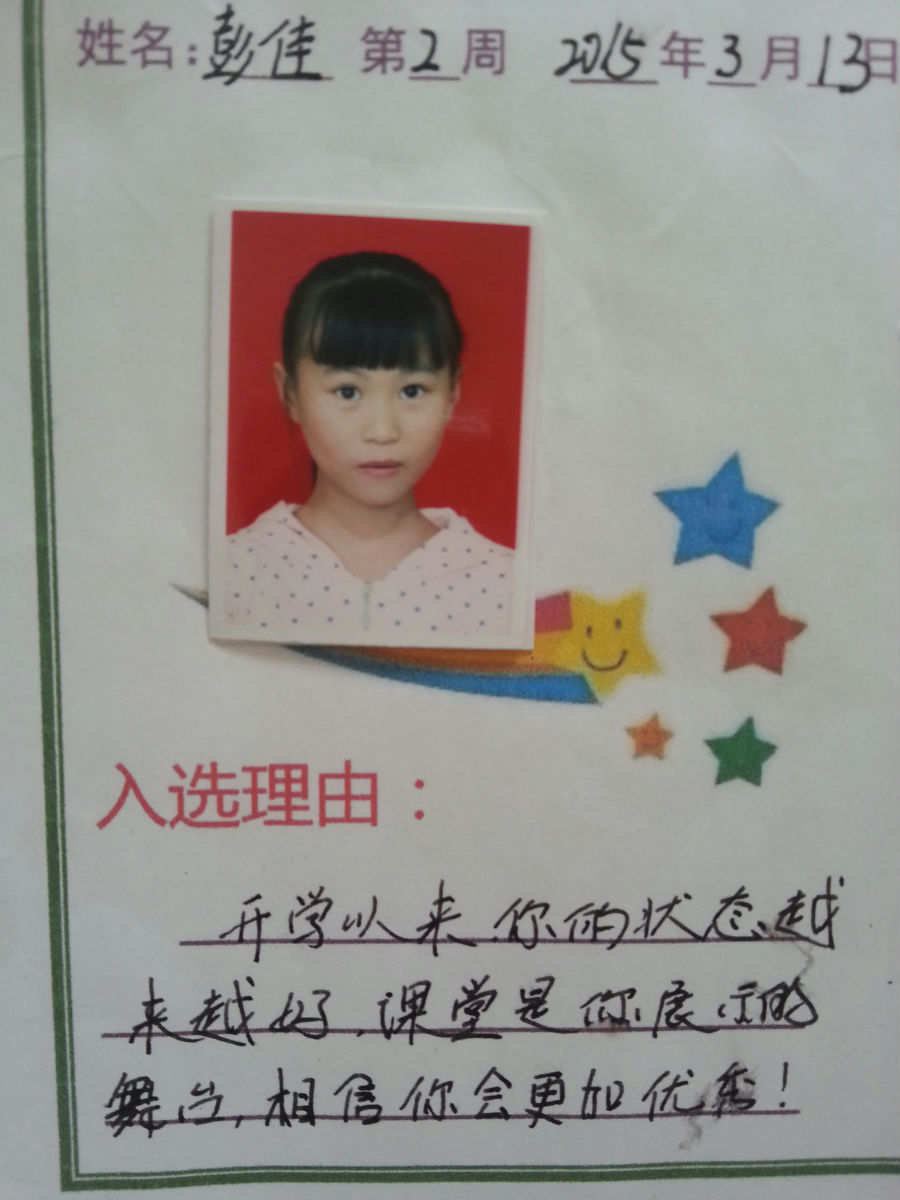 姓名:彭佳 第2周 2015年3月13日
入选理由:
开学以来,你的状态越
来越好,课堂是你展示的
舞台,相信你会更加优秀!